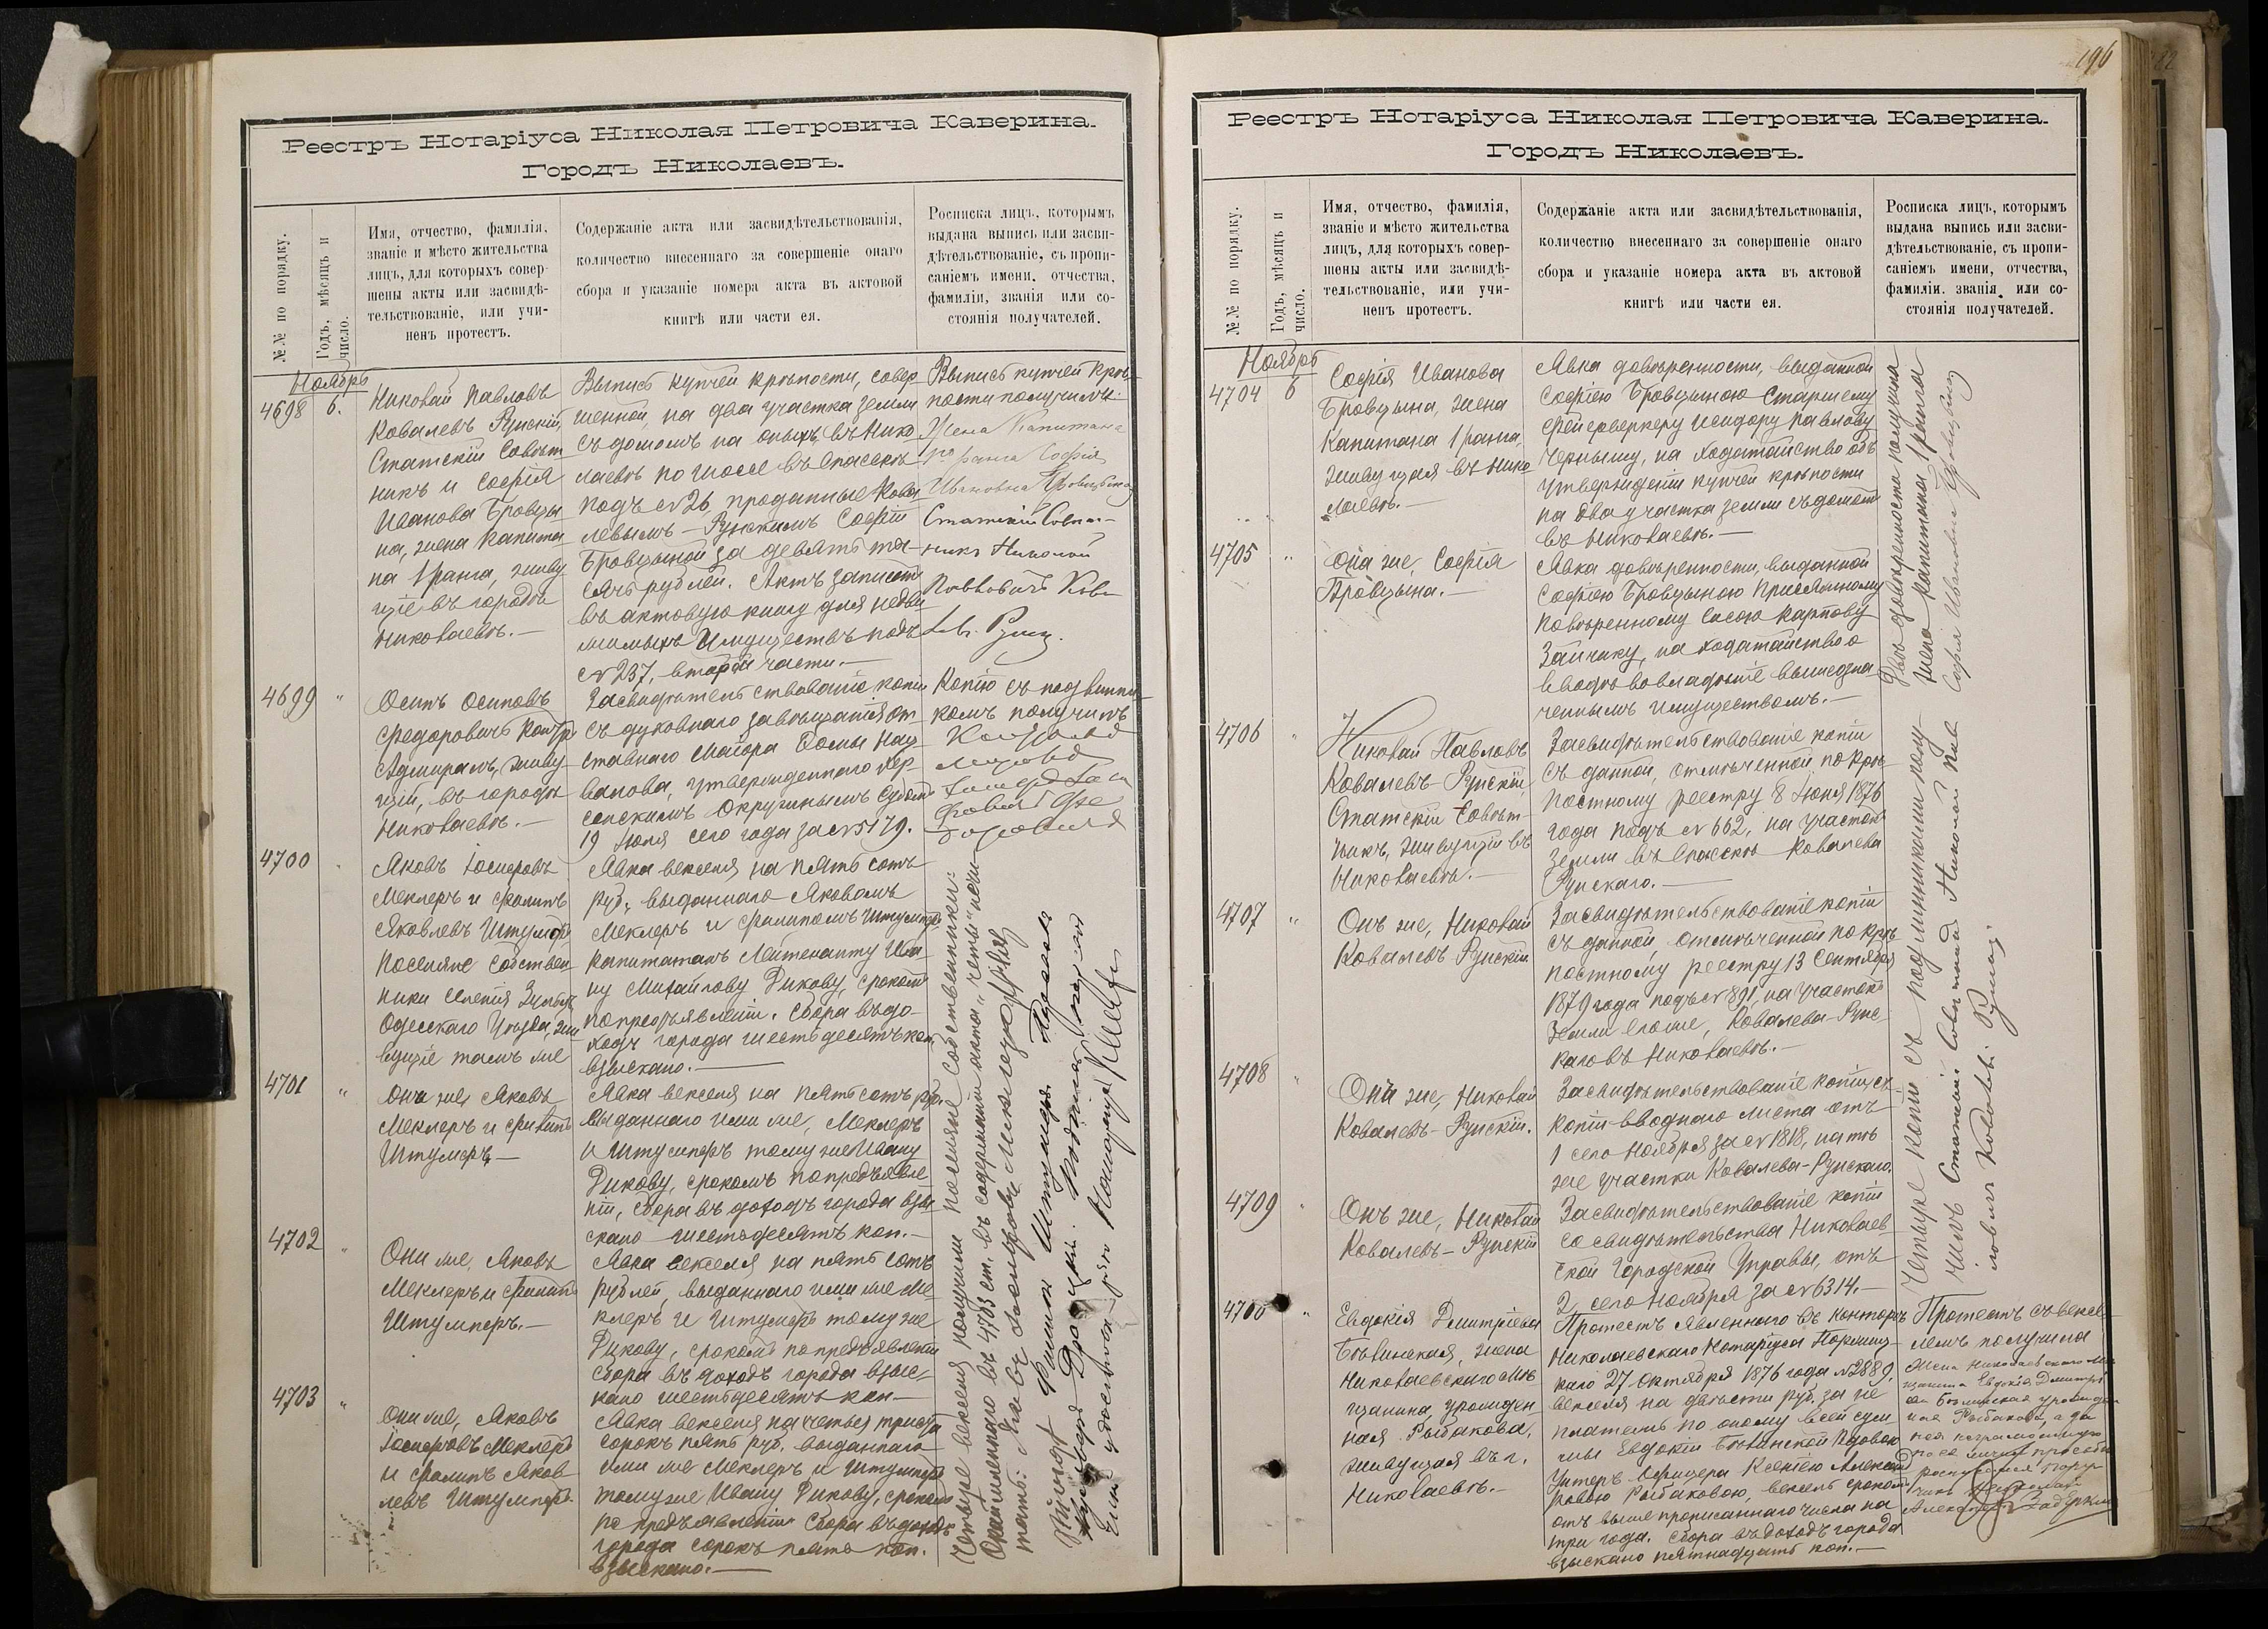 Реестръ Нотаріуса Николая Петровича Каверина.
Городъ Николаевъ.
№№ по порядку.
Годъ, мѣсяцъ и
число.
Имя, отчество, фамилія,
званіе и мѣсто жительства
лицъ, для которыхъ совер-
шены акты или засвидѣ-
тельствованіе, или учи-
ненъ протестъ.
Содержаніе акта или засвидѣтельствованія,
количество внесеннаго за совершеніе онаго
сбора и указаніе номера акта въ актовой
книгѣ или части ея.
Росписка лицъ, которымъ
выдана выпись или засви-
дѣтельствованіе, съ пропи-
саніемъ имени, отчества,
фамиліи, званія или со-
стоянія получателей.
Ноябрь
4698
6.
Николай Павловъ
Ковалевъ Рунскій,
Статскій Совѣт
никъ и Софія
Иванова Бровцы
на, жена Капита
на 1 ранга, живу
щіе въ городѣ
Николаевѣ.—
Выпись купчей крѣпости, совер
шенной, на два участка земли
съ домомъ на оныхъ, въ Нико
лаевѣ по шоссе въ Спасскѣ
подъ № 26, проданные Кова
левымъ-Рунскимъ Софіи
Бровцыной за девять ты
сячъ рублей. Актъ записанъ
въ актовую книгу для недви
жимыхъ Имуществъ подъ
№ 237, второй части.—
Выпись купчей крѣ
пости получили:
Жена Капитана
1го ранга Софія
Ивановна Бровцына
Статскій Совѣт-
никъ Николай
Павловичъ Кова
4699
"
Осипъ Осиповъ
Федоровичъ Контръ
Адмиралъ, живу
щій, въ городѣ
Николаевѣ.—
Засвидѣтельствованіе копіи
съ духовнаго завѣщанія от
ставнаго Маіора Ѳомы
утвержденнаго Хер
сонскимъ Окружнымъ Судомъ
19 Іюня сего года за № 5179.
Копію съ подлинни
комъ получилъ
4700
Яковъ Іосифовъ
Меклеръ и Филипъ
Яковлевъ Штумперъ
Поселяне Собствен
ники Селенія
Одесскаго Уѣзда, жи
вущіе тамъ же
Явка векселя на пять сотъ
руб., выданнаго Яковомъ
Меклеръ и Филипомъ Штумперъ
Капитанъ Лейтенанту Ива
ну Михайлову Дикову, срокомъ
по предъявленіи. Сбора въ до-
ходъ города шестьдесятъ коп.
взыскано.—
4701
"
Они же, Яковъ
Меклеръ и Филипъ
Штумперъ—
Явка векселя на пять сотъ руб.
выданнаго ими же, Меклеръ
и Штумперъ тому же Ивану
Дикову, срокомъ по предъявле
ніи, сбора въ доходъ города взы
скано шестьдесятъ коп.—
4702
"
Они же, Яковъ
Меклеръ и Филипъ
Штумперъ.—
Явка векселя на пять сотъ
рублей, выданнаго ими же Ме
клеръ и Штумперъ тому же
Дикову, срокомъ по предъявленіи
сбора въ доходъ города взыс-
кано шестьдесятъ коп—
4703
"
Они же, Яковъ
Іосифовъ Меклеръ
и Филипъ Яков
левъ Штумперъ
Явка векселя на четыреста
сорокъ пять руб, выданнаго
ими же Меклеръ и Штумперъ
тому же Ивану Дикову, срокомъ
по предъявленіи Сбора въ доходъ
города сорокъ пять коп.
взыскано.—
Четыре векселя получили поселяне собственники:
Реестръ Нотаріуса Николая Петровича Каверина.
Городъ Николаевъ.
№№ по порядку.
Годъ, мѣсяцъ и
число.
Имя, отчество, фамилія,
званіе и мѣсто жительства
лицъ, для которыхъ совер-
шены акты или засвидѣ-
тельствованіе, или учи-
ненъ протестъ.
Содержаніе акта или засвидѣтельствованія,
количество внесеннаго за совершеніе онаго
сбора и указаніе номера акта въ актовой
книгѣ или части ея.
Росписка лицъ, которымъ
выдана выпись или засви-
дѣтельствованіе, съ пропи-
саніемъ имени, отчества,
фамиліи. званія или со-
стоянія получателей.
Ноябрь
4704
6
Софія Иванова
Бровцына, жена
Капитана 1 ранга,
живущая въ Нико
лаевѣ.—
Явка довѣренности, выданной
Софіею Бровцыною Старшему
Фейерверкеру Исидору Павлову
Чернышу, на ходатайство объ
утвержденіи купчей крѣпости
на два участка земли съ домомъ
въ Николаевѣ.—
4705
"
Она же, Софія
Бровцына.—
Явка довѣренности, выданной
Софіею Бровцыною Присяжному
Повѣренному Сысою Карпову
Зайчику, на ходатайство о
вводѣ во владѣніе вышеозна
ченнымъ имуществомъ.—
Двѣ довѣренности получила
жена капитана 1 ранга
Софія Ивановна Бровцына
4706
"
Николай Павловъ
Ковалевъ-Рунскій,
Статскій Совѣт-
никъ, живущій въ
Николаевѣ.—
Засвидѣтельствованіе копіи
съ данной, отмѣченной по Крѣ
постному реестру 8 Іюня 1876
года подъ № 662, на участокъ
земли въ Спасскѣ Ковалева
Рунскаго.—
4707
"
Онъ же, Николай
Ковалевъ-Рунскій
Засвидѣтельствованіе копіи
съ данной, отмѣченной по Крѣ
постному реестру 13 Сентября
1879 года подъ № 891, на участокъ
земли его же, Ковалева-Рунс
каго въ Николаевѣ.—
4708
"
Онъ же, Николай
Ковалевъ-Рунскій.
Засвидѣтельствованіе копіи съ
копіи вводнаго листа отъ
1 сего Ноября за № 1818, на тѣ
же участки Ковалева-Рунскаго.
4709
"
Онъ же, Николай
Ковалевъ-Рунскій
Засвидѣтельствованіе копіи
со свидѣтельства Николаев
ской Городской Управы, отъ
2 сего Ноября за № 6314.—
Четыре копіи съ подлинниками полу-
чилъ Статскій Совѣтникъ Николай Пав
4700
"
Евдокія Дмитріева
жена
Николаевскаго мѣ
щанина, урожден
ная Рыбакова,
живущая въ г.
Николаевѣ.—
Протестъ явленнаго въ конторѣ
Николаевскаго Нотаріуса
27 Октября 1876 года № 2889,
векселя на двѣсти руб. за не
платежъ по оному всей сум
мы Евдокіи Вдовою
Унтеръ Офицера Ксеніею
Рыбаковою, вексель срокомъ
отъ выше прописаннаго числа на
три года. Сбора въ доходъ города
взыскано пятнадцать коп.—
Протестъ съ вексе
лемъ получила
жена Николаевскаго мѣ
щанина Евдокія Дмитріе
196